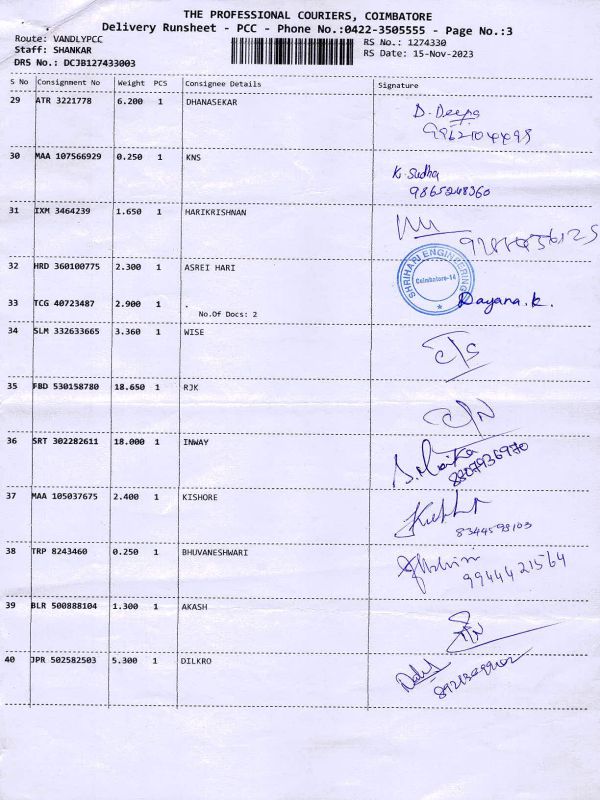 THE PROFESSIONAL COURIERS, COIMBATORE
Delivery Runsheet - PCC - Phone No.:0422-3505555 - Page No.:3
Route: VANDLYPCC
Staff: SHANKAR
DRS No.: DCJB127433003
RS No.: 1274330
RS Date: 15-Nov-2023
S No Consignment No Weight PCS Consignee Details Signature
29 ATR 3221778 6.200 1 DHANASEKAR
D. Deepa
30 MAA 107566929 0.250 1 KNS
K. Sudha
9865248360
31 IXM 3464239 1.650 1 HARIKRISHNAN
32 HRD 360100775 2.300 1 ASREI HARI
SHRIHARI ENGINEERING
Coimbatore-14
33 TCG 40723487 2.900 1 .
No.Of Docs: 2
Dayana.K.
34 SLM 332633665 3.360 1 WISE
35 FBD 530158780 18.650 1 RJK
36 SRT 302282611 18.000 1 INWAY
8807936970
37 MAA 105037675 2.400 1 KISHORE
8344598103
38 TRP 8243460 0.250 1 BHUVANESHWARI
9944421564
39 BLR 500888104 1.300 1 AKASH
40 JPR 502582503 5.300 1 DILKRO